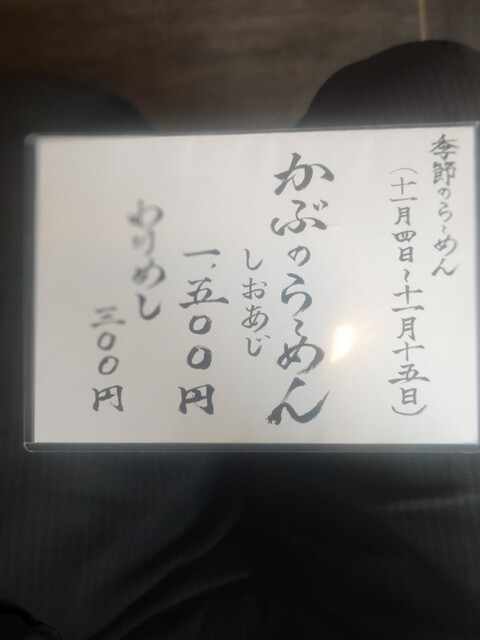 季節のらーめん
(十一月四日~十一月十五日)
かぶのらーめん
しおあじ
一、五〇〇円
わりめし
三〇〇円